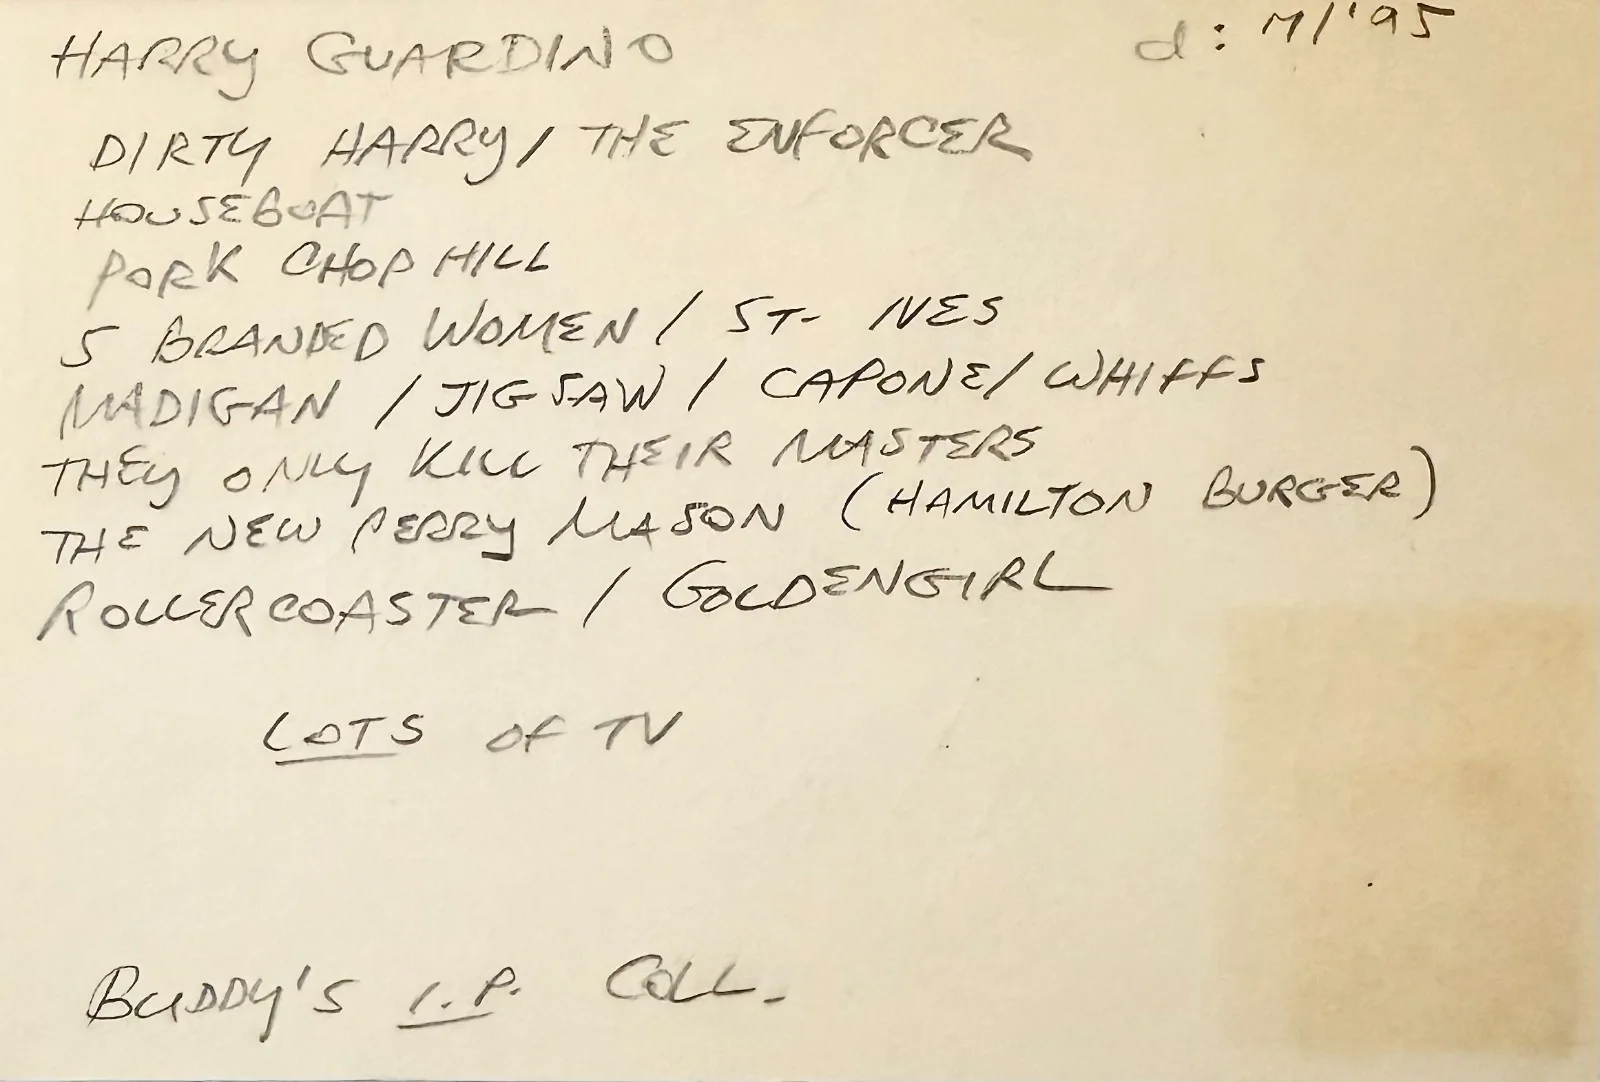 HARRY GUARDINO
d: 7/'95
DIRTY HARRY / THE ENFORCER
HOUSEBOAT
PORK CHOP HILL
5 BRANDED WOMEN / ST- IVES
MADIGAN / JIGSAW / CAPONE / WHIFFS
THEY ONLY KILL THEIR MASTERS
THE NEW PERRY MASON (HAMILTON BURGER)
ROLLERCOASTER / GOLDENGIRL
LOTS OF TV
BUDDY'S I.P. COLL.